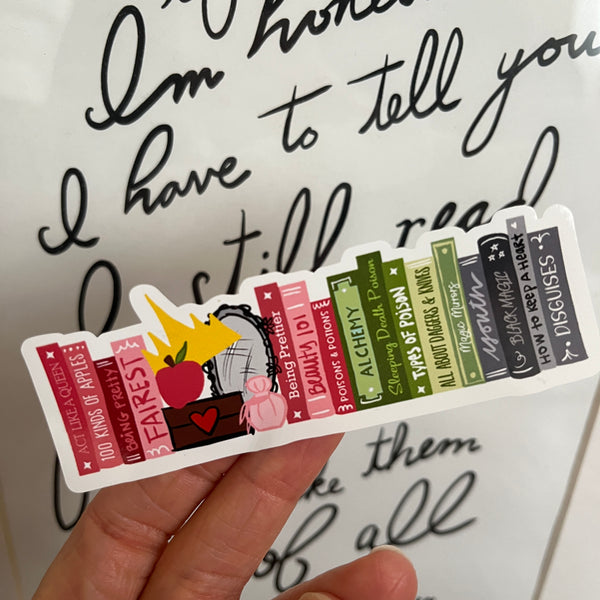 Im honest
I have to tell you
I still read
them
of all
ACT LIKE A QUEEN
100 KINDS OF APPLES
BEING PRETTY
FAIREST
Being Prettier
BEAUTY 101
POISONS & POTIONS
ALCHEMY
Sleeping Death Poison
TYPES OF POISON
ALL ABOUT DAGGERS & KNIVES
Magic Mirrors
youth
BLACK MAGIC
HOW TO KEEP A HEART
DISGUISES